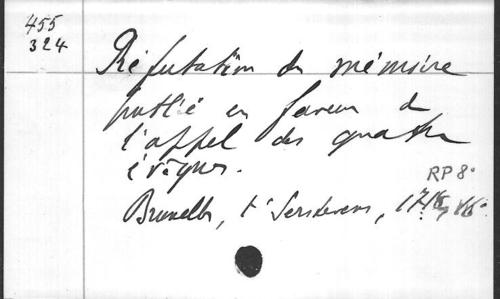 455
324
Réfutation du mémoire
publié en faveur de
l'appel des quatre
évêques.
RP 8°
Bruxelles, t'Serstevens,